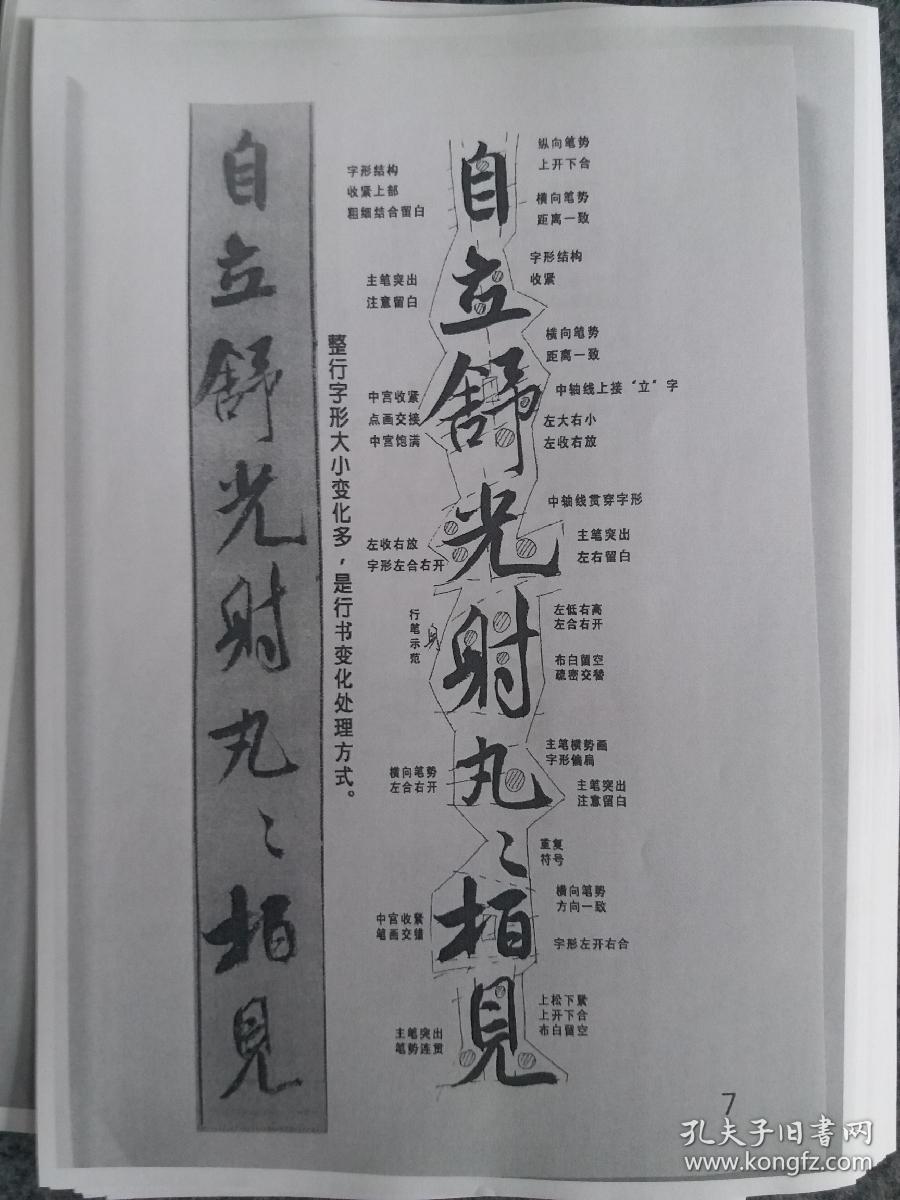 自立舒光射丸〻柏見
整行字形大小变化多，是行书变化处理方式。
字形结构
收紧上部
粗细结合留白
主笔突出
注意留白
中宫收紧
点画交接
中宫饱满
左收右放
字形左合右开
行笔示范
横向笔势
左合右开
中宫收紧
笔画交错
主笔突出
笔势连贯
自立舒光射丸〻柏見
纵向笔势
上开下合
横向笔势
距离一致
字形结构
收紧
横向笔势
距离一致
中轴线上接“立”字
左大右小
左收右放
中轴线贯穿字形
主笔突出
左右留白
左低右高
左合右开
布白留空
疏密交替
主笔横势画
字形偏扁
主笔突出
注意留白
重复
符号
横向笔势
方向一致
字形左开右合
上松下紧
上开下合
布白留空
7
孔夫子旧书网
www.kongfz.com